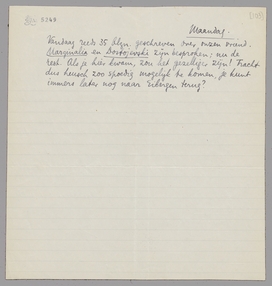 5248
Maandag.
Vandaag reeds 35 blzn geschreven over onzen vriend.
Marginalia en Dostojewski zijn besproken; nu de
rest. Als je hier kwam, zou het gezelliger zijn! Tracht
dus heusch zoo spoedig mogelijk te komen, je kunt
immers later nog naar Eibergen terug?